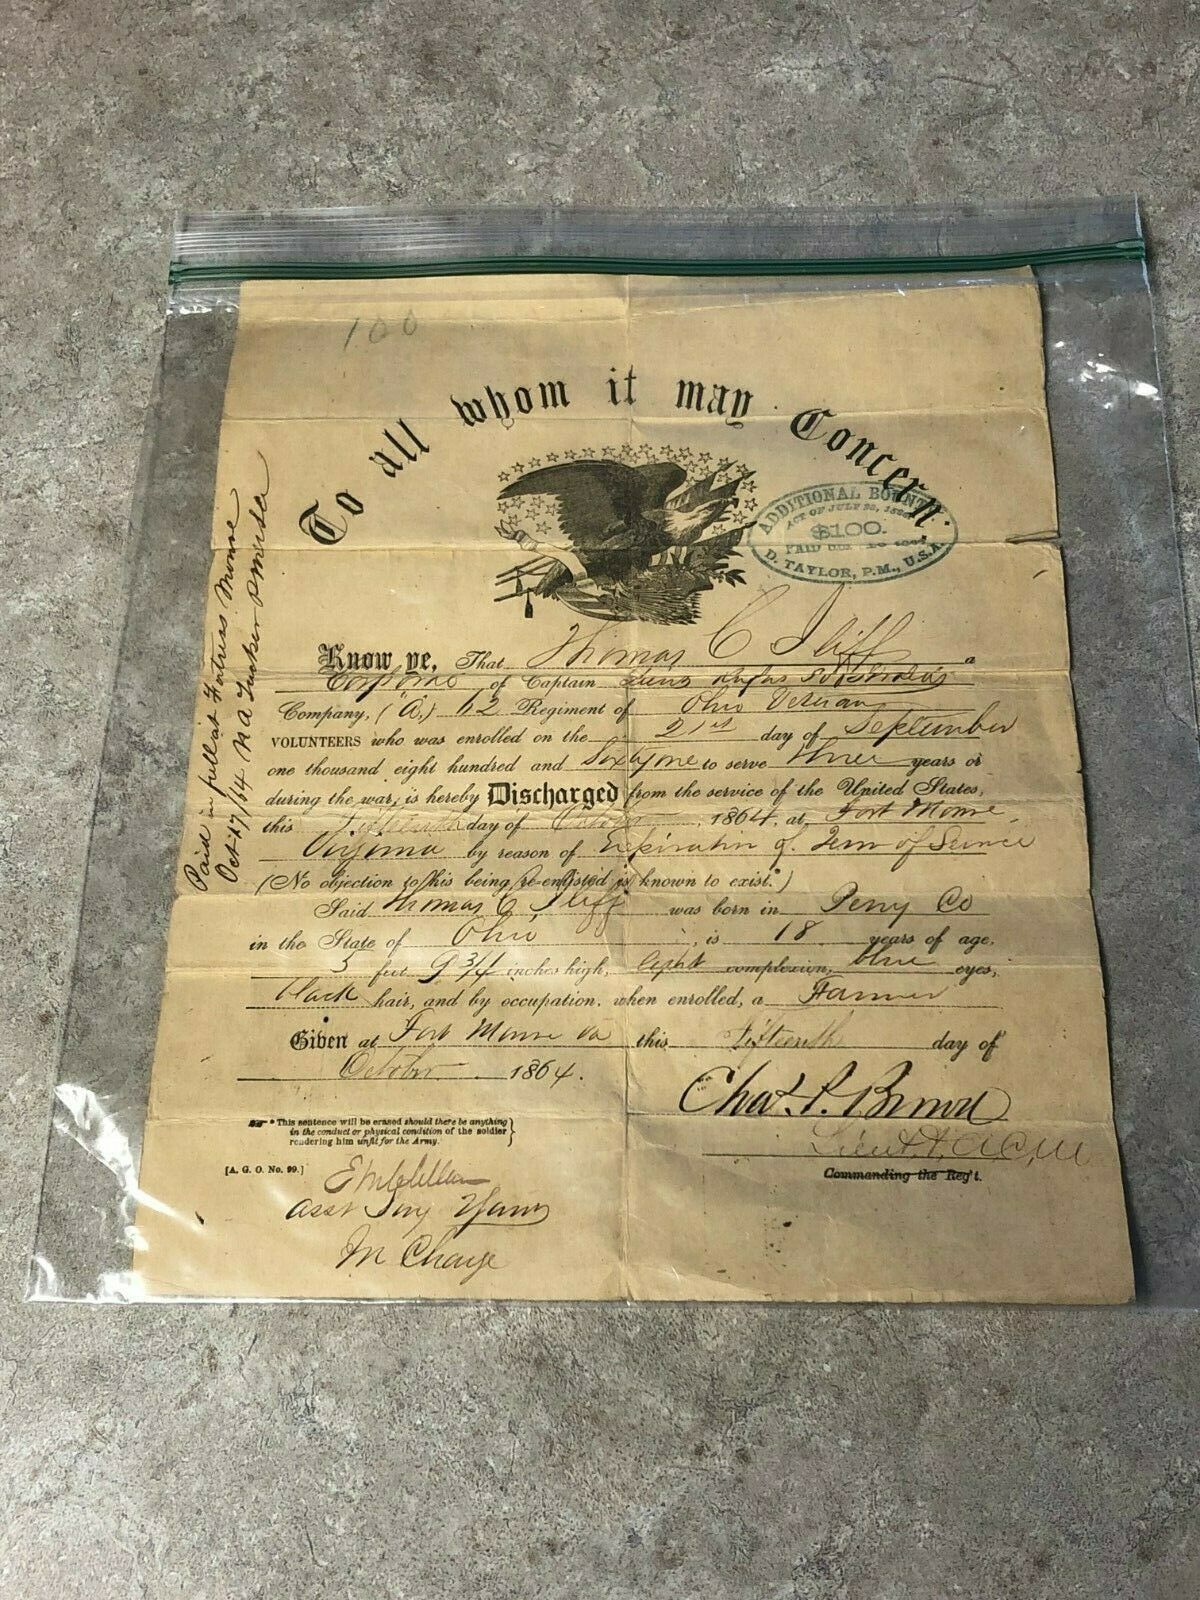 100
To all whom it may Concern.
ADDITIONAL BOUNTY
ACT OF JULY 28, 1866
$100.
PAID
D. TAYLOR, P.M., U.S.A.
Know ye, That Thomas C Iliff a
Corporal of Captain
Company, (A,) 62 Regiment of Ohio Veteran
VOLUNTEERS who was enrolled on the 21st day of September
one thousand eight hundred and Sixty one to serve three years or
during the war, is hereby Discharged from the service of the United States,
this Fifteenth day of October, 1864, at Fort Monroe,
Virginia by reason of Expiration of Term of Service
(No objection to his being re-enlisted is known to exist.*)
Said Thomas C. Iliff was born in Perry Co
in the State of Ohio, is 18 years of age,
5 feet 9 3/4 inches high, light complexion, blue eyes,
black hair, and by occupation, when enrolled, a Farmer
Given at Fort Monroe Va this Fifteenth day of
October 1864.
Chas. P. Brown
Lieut. & A.C.M
Commanding the Reg't.
* This sentence will be erased should there be anything
in the conduct or physical condition of the soldier
rendering him unfit for the Army.
[A. G. O. No. 99.]
Asst Surg
In Charge
Paid in full at Fortress Monroe
Oct 17/64